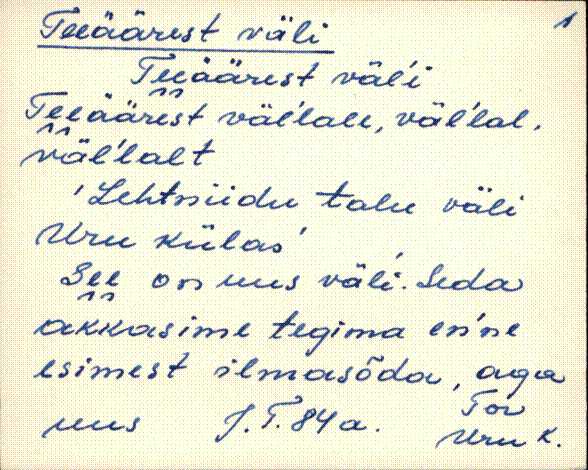 1
Teeäärest väli
Teeäärest väl'i
Teeäärest väl'lale, väl'lal,
väl'lalt
'Lehtniidu talu väli
Uru külas'
See on uus väl'i. Seda
akkasime tegima en'ne
esimest ilmasõda, aga
uus J.T. 84 a. Tor
Uru k.